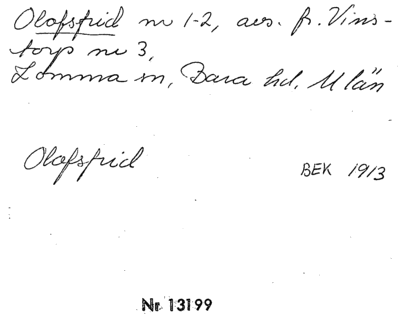 Olofsfrid nr 1-2, avs. fr. Vins-
torp nr 3,
Lomma sn, Bara hd. M län
Olofsfrid
BEK 1913
Nr 13199